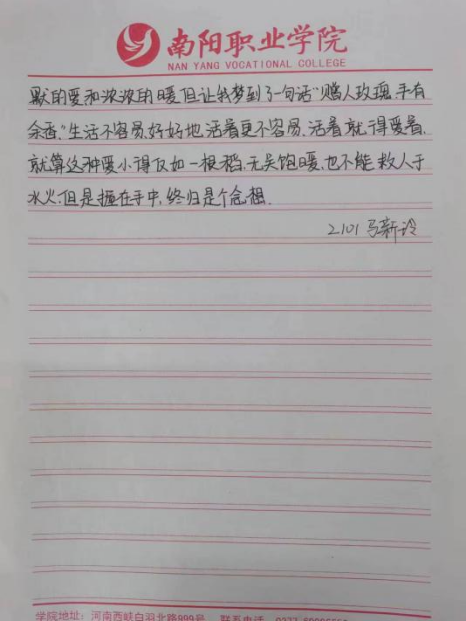 南阳职业学院
NAN YANG VOCATIONAL COLLEGE
默的爱和浓浓的暖但让我梦到了一句话"赠人玫瑰,手有
余香."生活不容易,好好地活着更不容易,活着就得爱着,
就算这种爱小得仅如一根稻,无关饱暖,也不能救人于
水火,但是握在手中,终归是个念想.
2101 马新冷
学院地址:河南西峡白羽北路999号 联系电话 0377